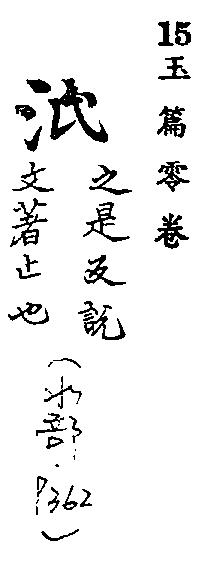 15玉篇零卷
汦
之是反説
文著止也
(水部·P362)